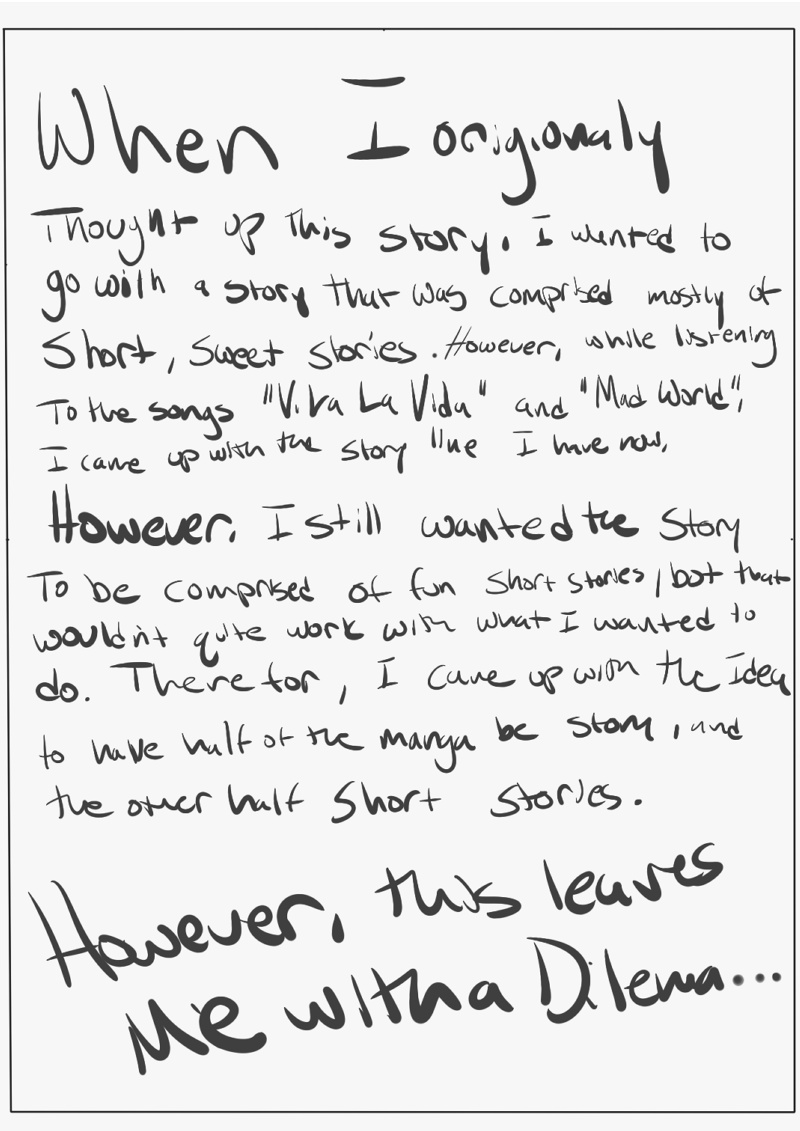 When I origionaly
Thought up this story, I wanted to
go with a story that was comprised mostly of
Short, sweet stories. However, while listening
To the songs "Viva La Vida" and "Mad World",
I came up with the story line I have now.
However, I still wanted the story
To be comprised of fun short stories, but that
wouldn't quite work with what I wanted to
do. Therefor, I came up with the Idea
to have half of the manga be story, and
the other half short stories.
However, this leaves
Me with a Dilema...